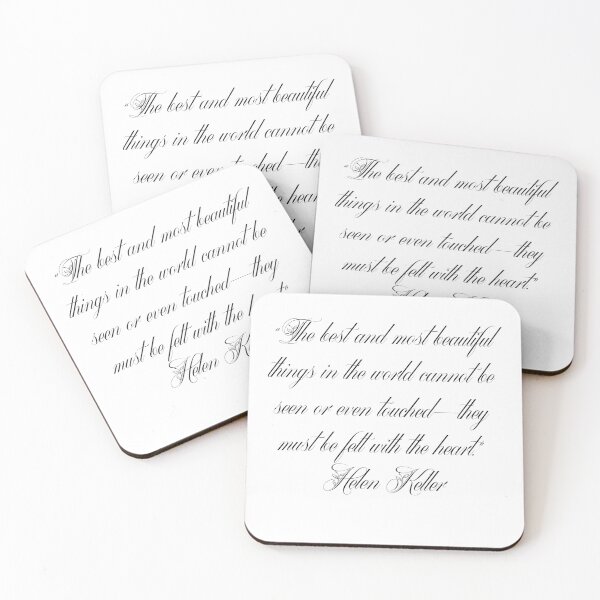 “The best and most beautiful
things in the world cannot be
seen or even touched—the
“The best and most beautiful
things in the world cannot be
seen or even touched—they
must be felt with the heart.”
Helen Keller
“The best and most beautiful
things in the world cannot be
seen or even touched—they
must be felt with the
Helen Ke
“The best and most beautiful
things in the world cannot be
seen or even touched—they
must be felt with the heart.”
Helen Keller